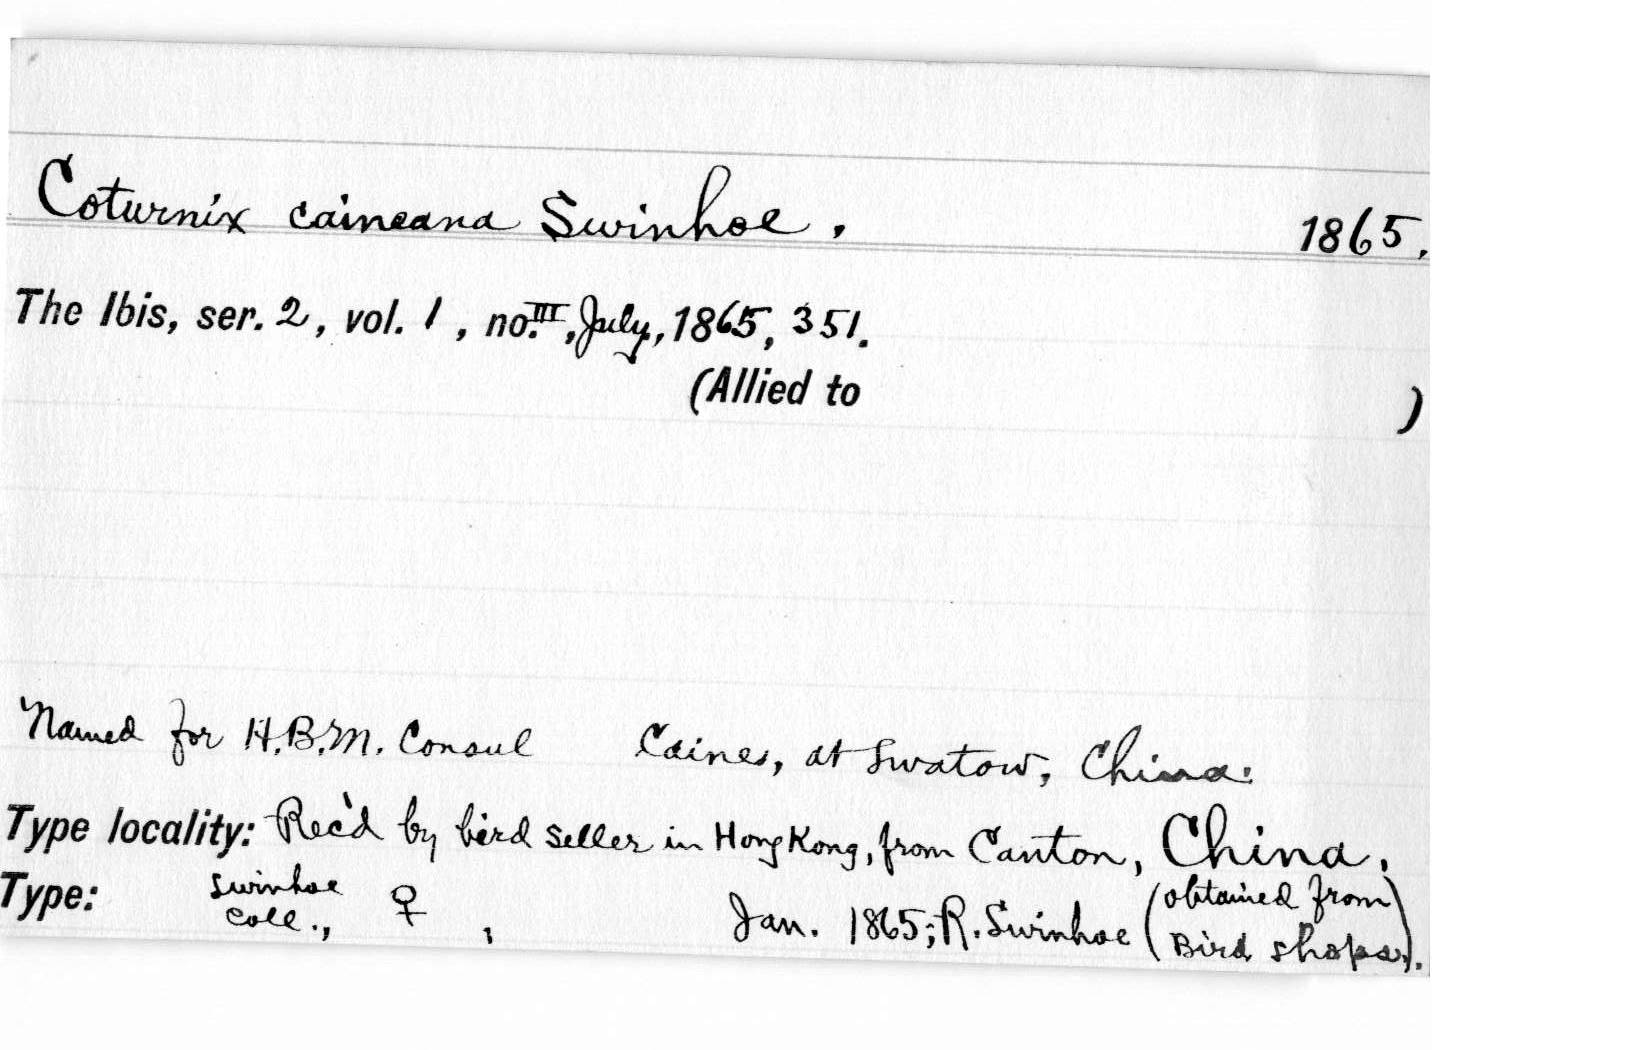 Coturnix caineana Swinhoe. 1865.
The Ibis, ser. 2, vol. 1, no. III, July, 1865, 351.
(Allied to )
Named for H.B.M. Consul Caines, at Swatow, China.
Type locality: Rec'd by bird seller in Hong Kong, from Canton, China.
Type: Swinhoe Coll., ♀, Jan. 1865; R. Swinhoe (obtained from Bird shops).